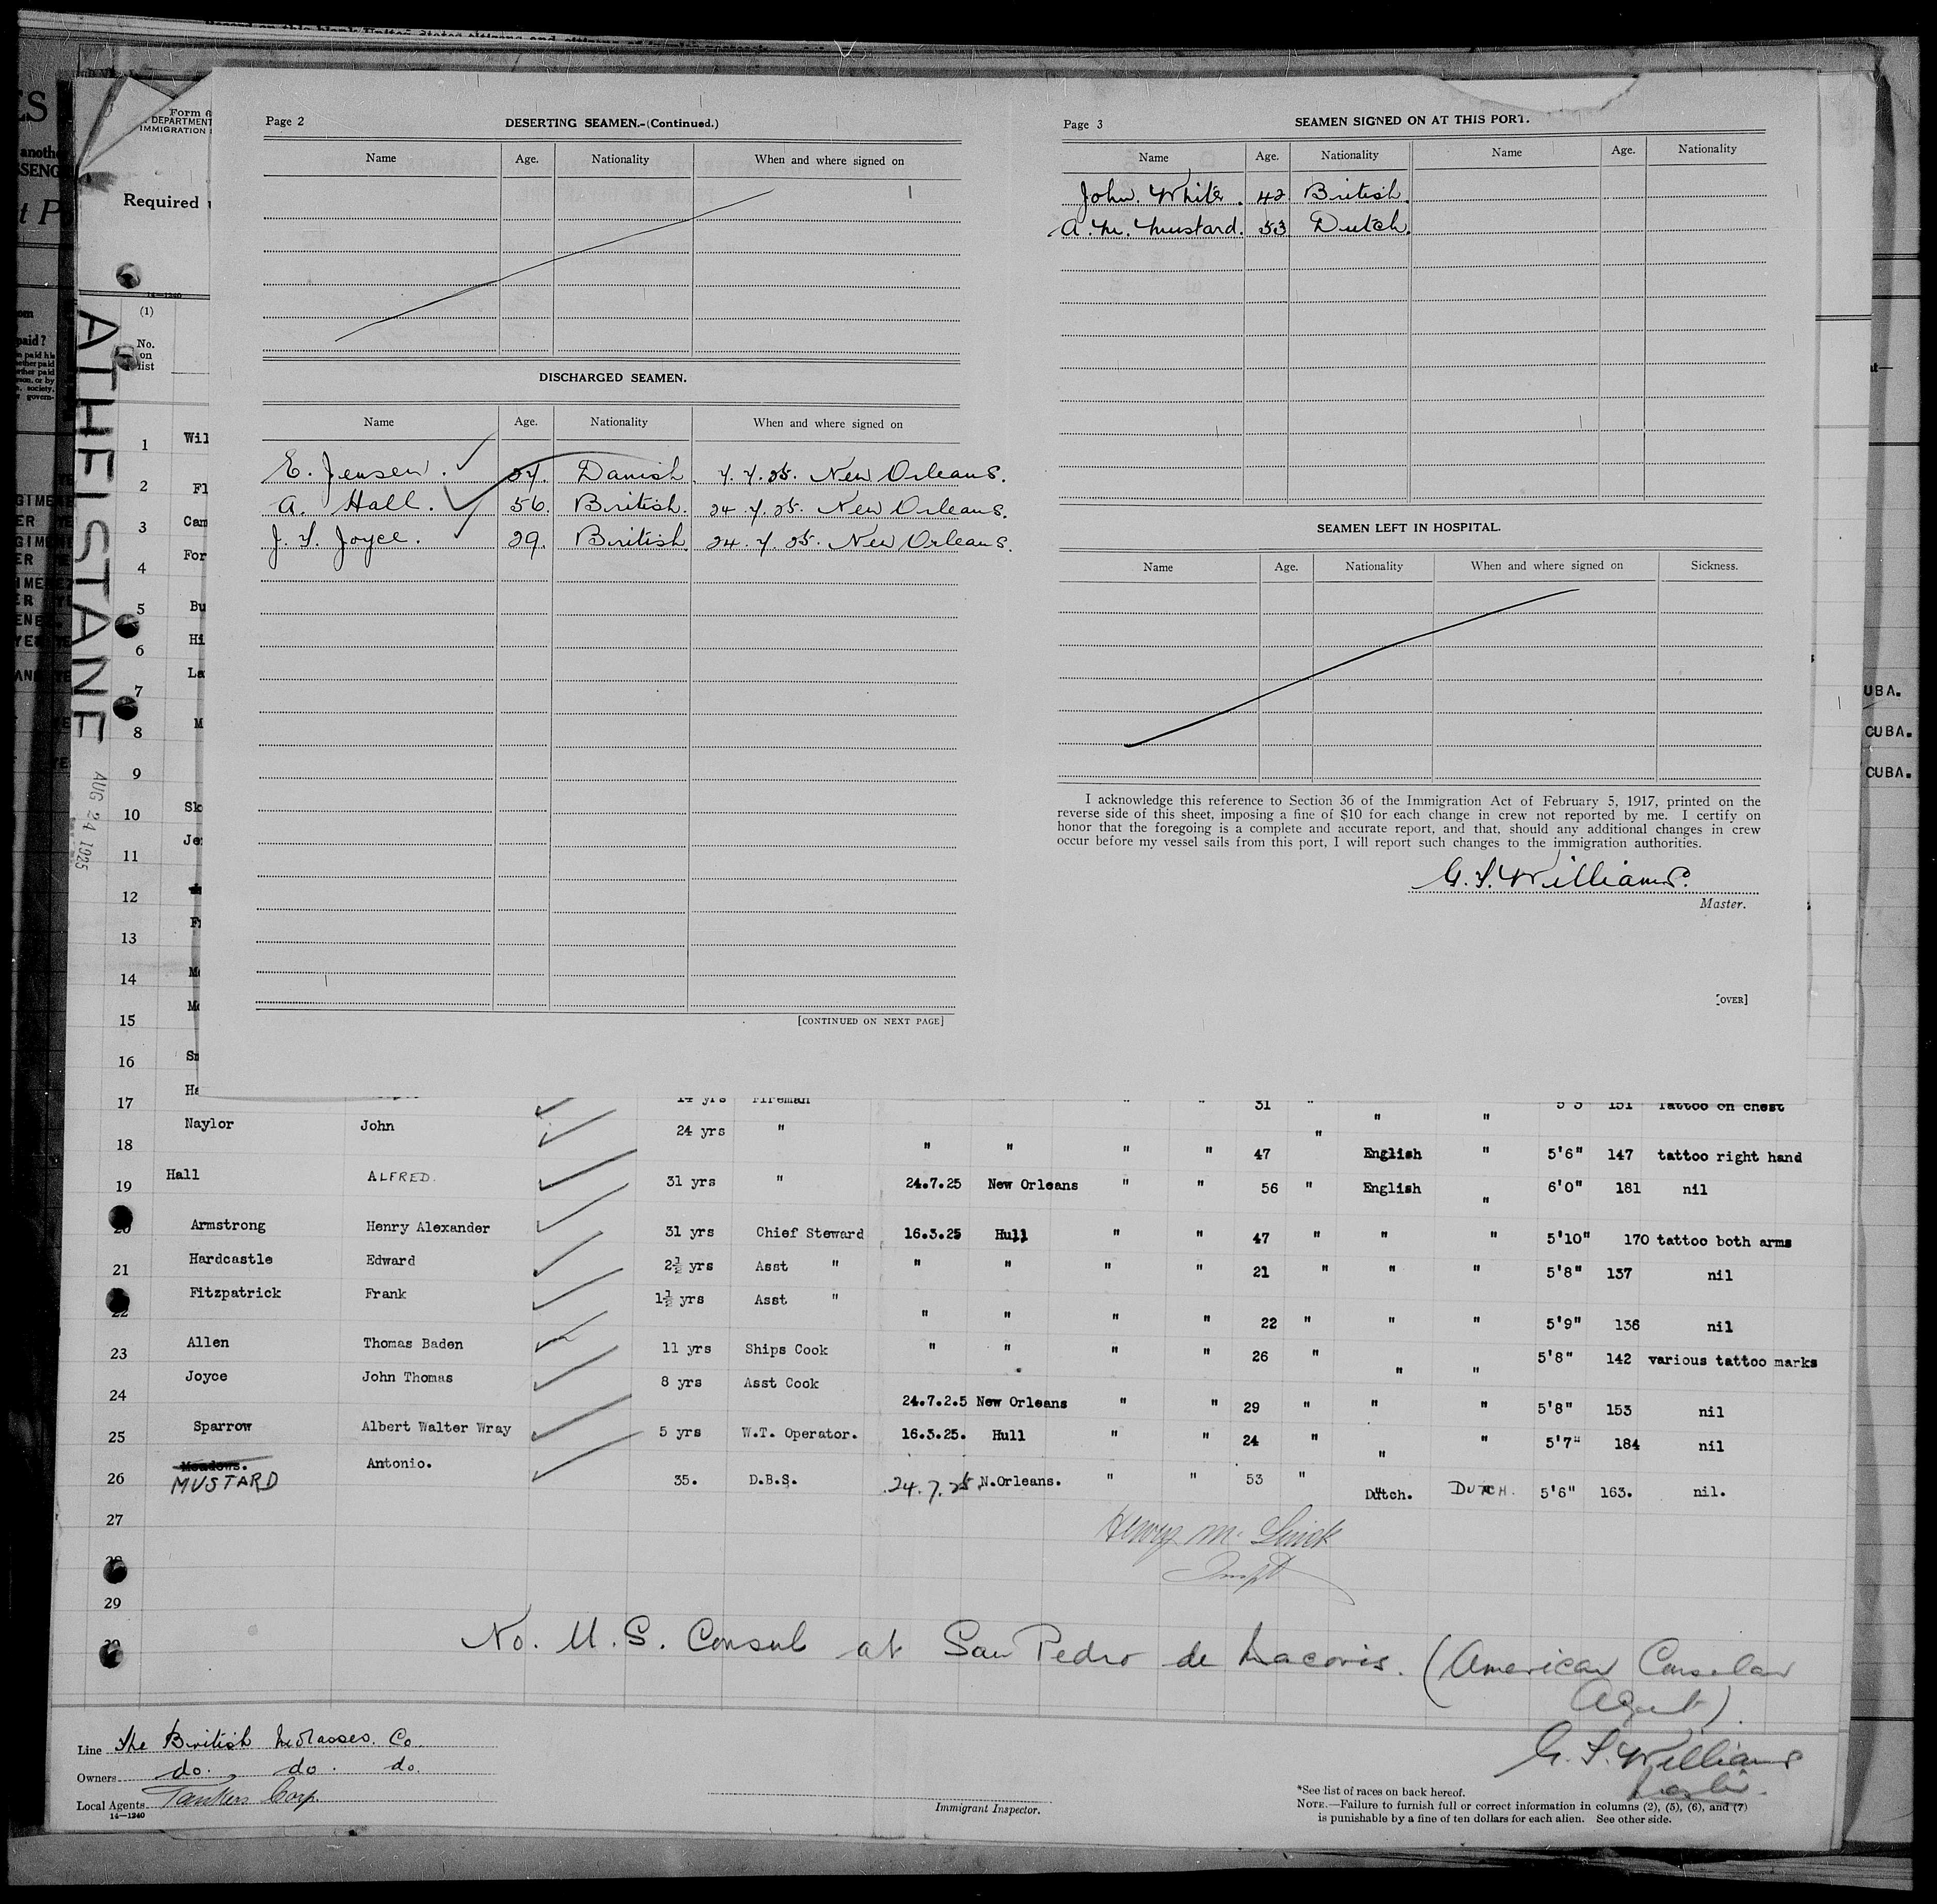 ATHELSTANE
AUG 24 1925
Form 6
DEPARTMENT
IMMIGRATION
Required
14—1240
(1)
No.
on
list
Page 2
DESERTING SEAMEN.-(Continued.)
Name Age. Nationality When and where signed on
DISCHARGED SEAMEN.
Name Age. Nationality When and where signed on
E. Jensen. 27. Danish 7.7.25. New Orleans.
A. Hall. 56. British. 24.7.25. New Orleans.
J. T. Joyce. 29. British. 24.7.25. New Orleans.
[CONTINUED ON NEXT PAGE]
Page 3
SEAMEN SIGNED ON AT THIS PORT.
Name Age. Nationality Name Age. Nationality
John. White. 42 British.
A. M. Mustard. 53 Dutch.
SEAMEN LEFT IN HOSPITAL.
Name Age. Nationality When and where signed on Sickness.
I acknowledge this reference to Section 36 of the Immigration Act of February 5, 1917, printed on the
reverse side of this sheet, imposing a fine of $10 for each change in crew not reported by me. I certify on
honor that the foregoing is a complete and accurate report, and that, should any additional changes in crew
occur before my vessel sails from this port, I will report such changes to the immigration authorities.
G. T. Williams.
Master.
[OVER]
1 Wil
2 Fl
3 Cam
4 For
5 Bu
6 Hi
7 La
8 M
9
10 Sk
11 Je
12
13 F
14 Mc
15 Mc
16 Sm
17 Ha 14 yrs Fireman " " 31 " " " 5'5 151 Tattoo on chest
18 Naylor John 24 yrs " " " " " 47 " English " 5'6" 147 tattoo right hand
19 Hall ALFRED. 31 yrs " 24.7.25 New Orleans " " 56 " English " 6'0" 181 nil
20 Armstrong Henry Alexander 31 yrs Chief Steward 16.3.25 Hull " " 47 " " " 5'10" 170 tattoo both arms
21 Hardcastle Edward 2½ yrs Asst " " " " " 21 " " " 5'8" 137 nil
22 Fitzpatrick Frank 1½ yrs Asst " " " " " 22 " " " 5'9" 136 nil
23 Allen Thomas Baden 11 yrs Ships Cook " " " " 26 " " " 5'8" 142 various tattoo marks
24 Joyce John Thomas 8 yrs Asst Cook 24.7.2.5 New Orleans " " 29 " " " 5'8" 153 nil
25 Sparrow Albert Walter Wray 5 yrs W.T. Operator. 16.3.25. Hull " " 24 " " " 5'7" 184 nil
26 Meadows. MUSTARD Antonio. 35. D.B.S. 24.7.25 N.Orleans. " " 53 " Dutch. DUTCH. 5'6" 163. nil.
27
28
29
30
Inspt
No. U.S. Consul at San Pedro de Macoris. (American Consular
Agent).
G. T. Williams
Master.
Line The British Molasses. Co.
Owners do. do. do.
Local Agents Tankers Corp.
14—1240
Immigrant Inspector.
*See list of races on back hereof.
NOTE.—Failure to furnish full or correct information in columns (2), (5), (6), and (7)
is punishable by a fine of ten dollars for each alien. See other side.
UBA.
CUBA.
CUBA.